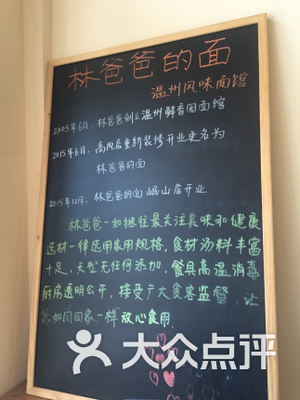 林爸爸的面
温州风味面馆
2005年6月，林爸爸创业温州鲜香园面馆
2015年6月，高风店重新装修开业更名为
林爸爸的面
2015年12月，林爸爸的面岷山店开业
林爸爸一如继往最关注美味和健康
选材一律选用家用规格，食材汤料丰富
十足，大型无任何添加，餐具高温消毒
厨房透明公开，接受广大食客监督，让
您如同回家一样放心食用
大众点评